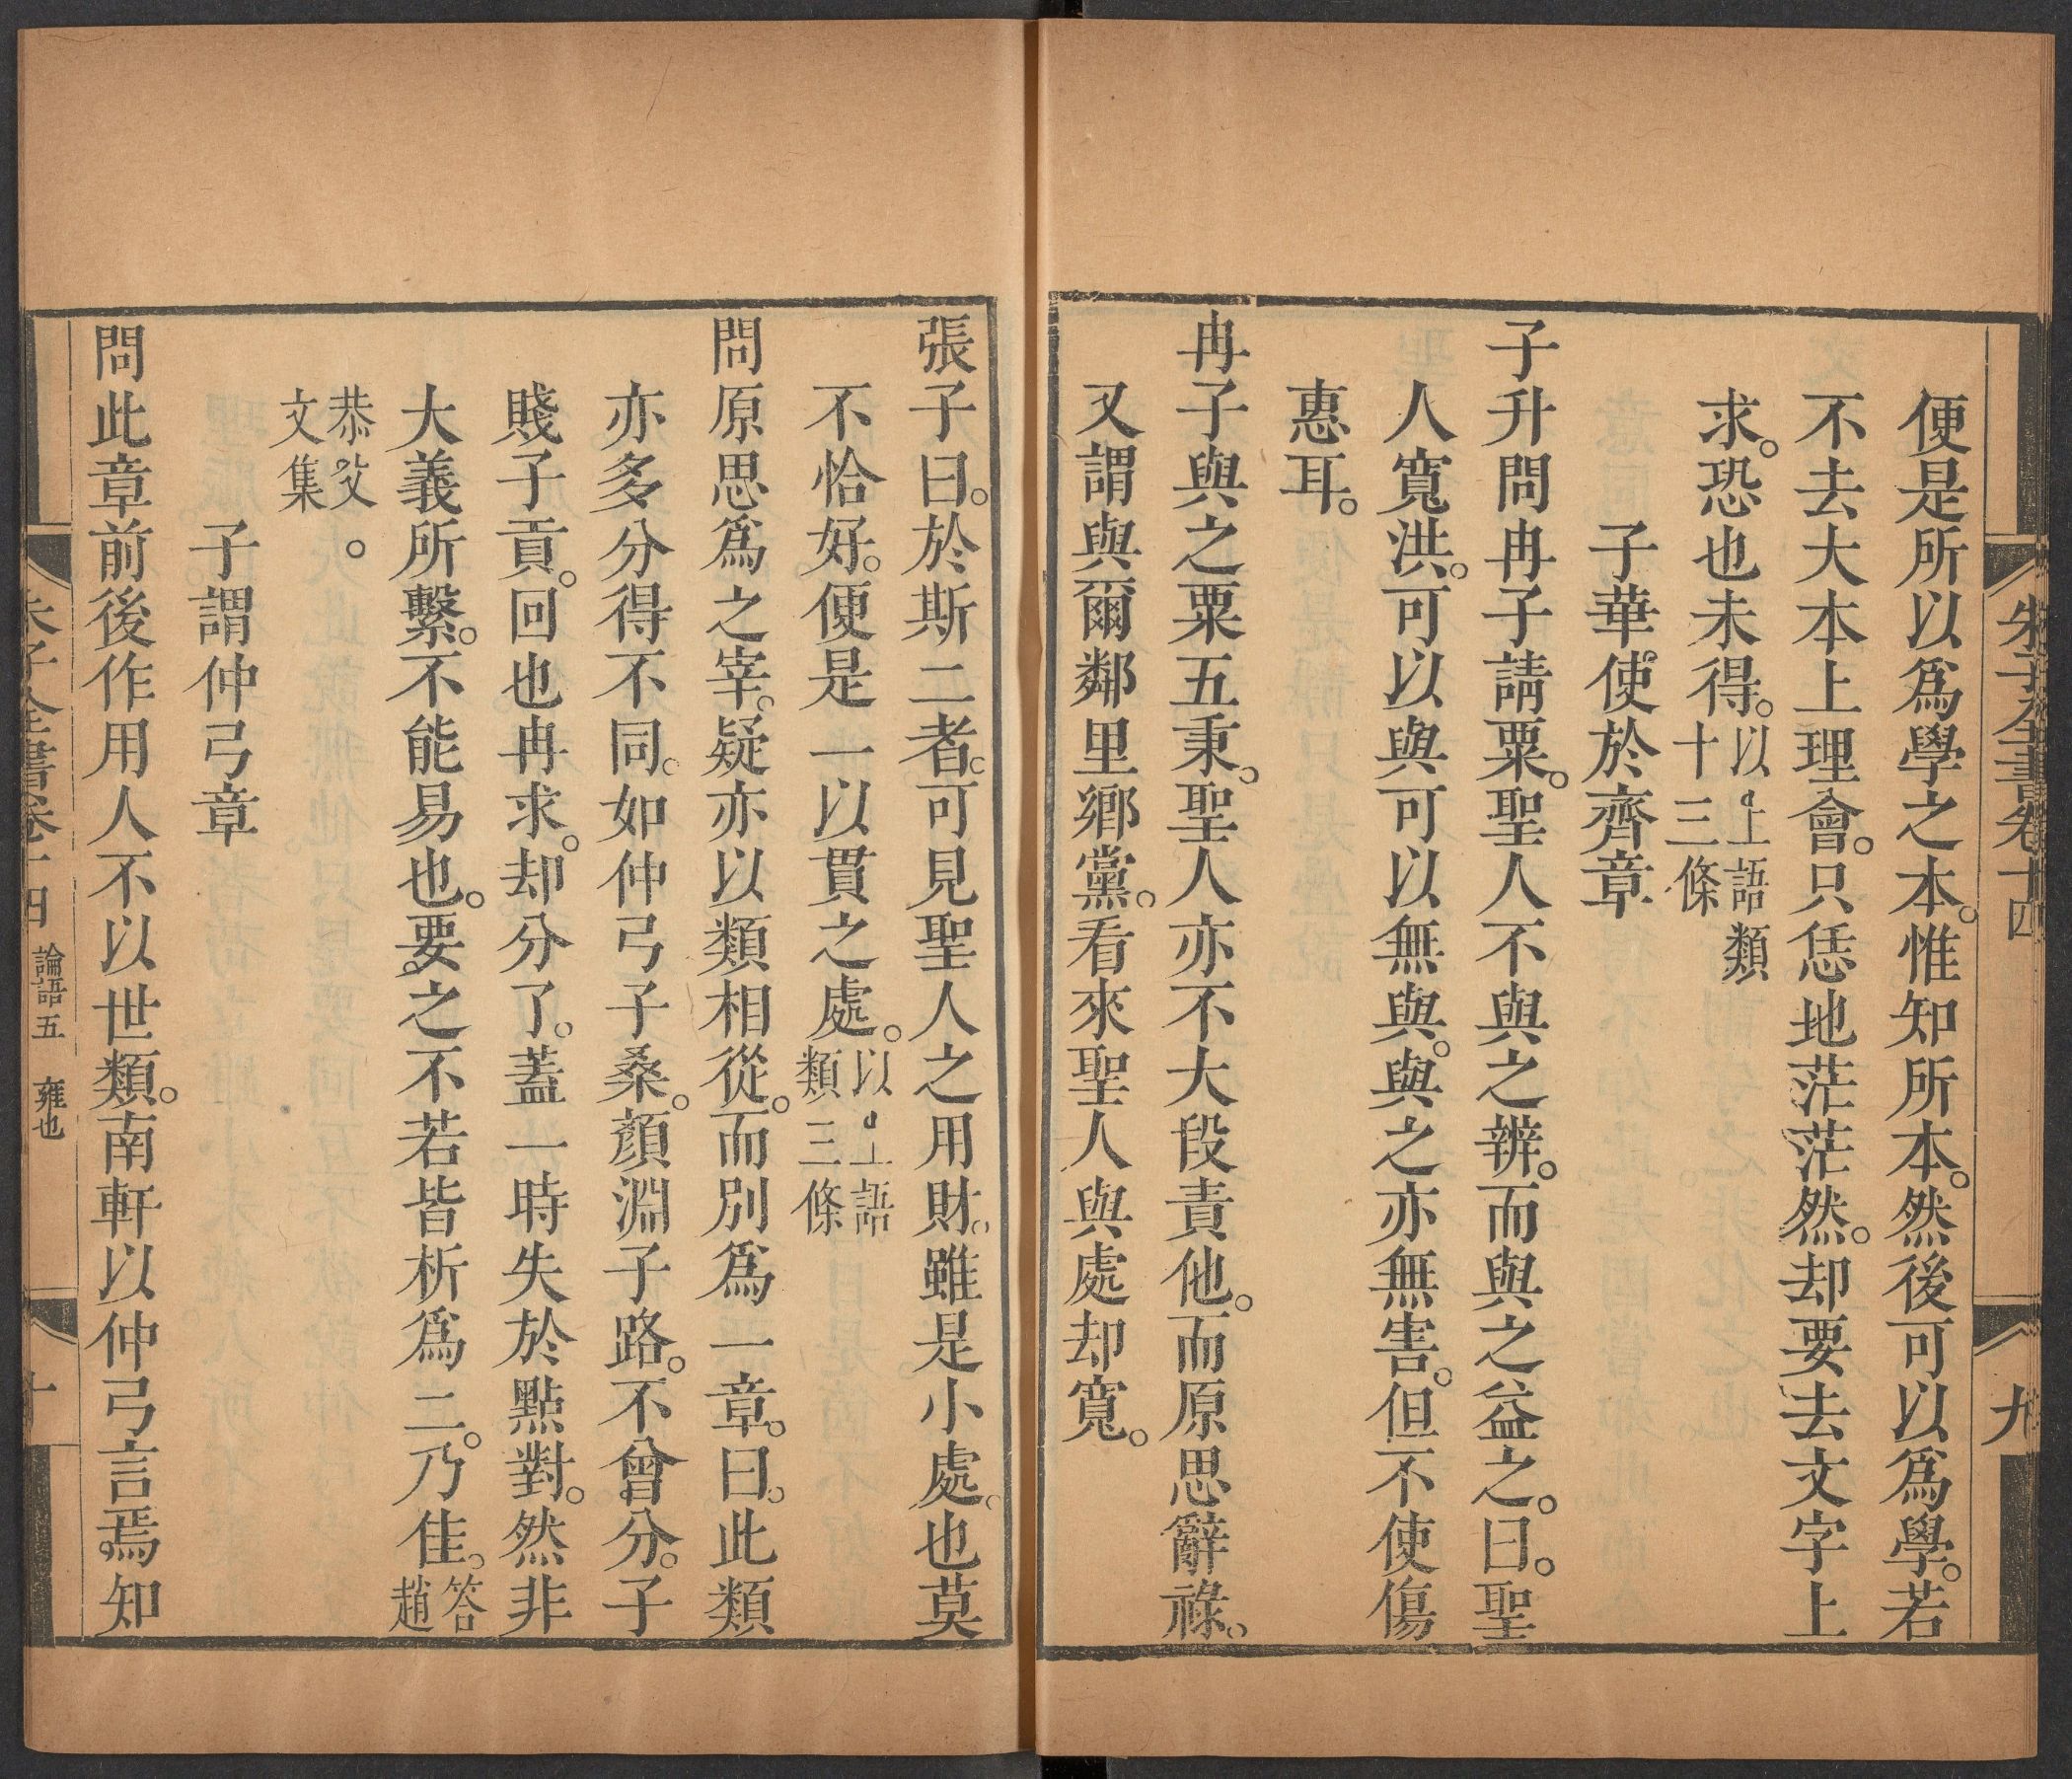 朱子全書卷十四
九
便是所以爲學之本。惟知所本。然後可以爲學。若
不去大本上理會。只恁地茫茫然。却要去文字上
求。恐也未得。以上語類十三條
子華使於齊章
子升問冉子請粟。聖人不與之辨。而與之益之。曰。聖
人寬洪。可以與可以無與。與之亦無害。但不使傷
惠耳。
冉子與之粟五秉。聖人亦不大段責他。而原思辭祿。
又謂與爾鄰里鄉黨。看來聖人與處却寬。
張子曰。於斯二者。可見聖人之用財。雖是小處。也莫
不恰好。便是一以貫之處。以上語類三條
問原思爲之宰。疑亦以類相從。而別爲一章。曰。此類
亦多分得不同。如仲弓子桑。顏淵子路。不曾分。子
賤子貢。回也冉求。却分了。蓋一時失於點對。然非
大義所繫。不能易也。要之不若皆析爲二。乃佳。答趙
恭父。文集
子謂仲弓章
問此章前後作用人不以世類。南軒以仲弓言焉知
朱子全書卷十四 論語五 雍也
十